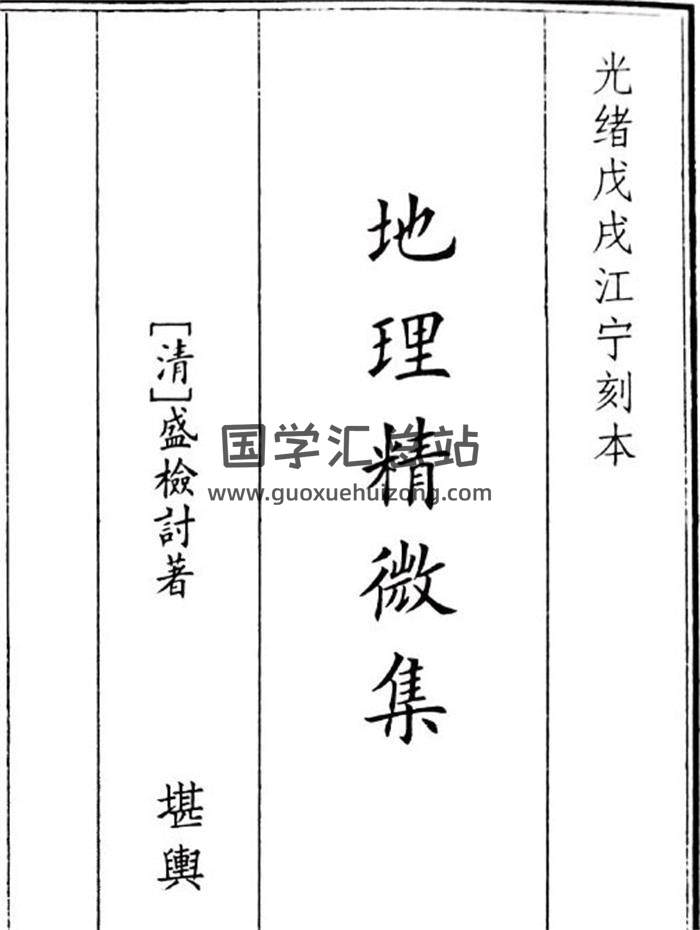 光绪戊戌江宁刻本
地理精微集
[清]盛檢討著
堪輿
国学汇总站
www.guoxuehuizong.com